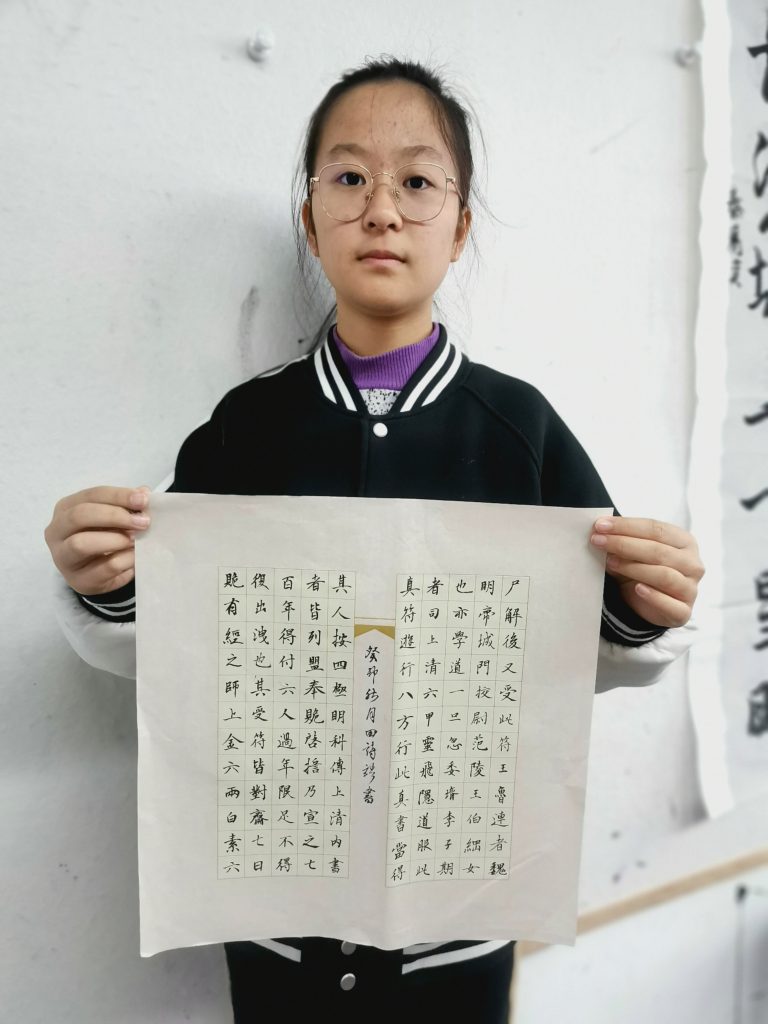 尸解後又受此符王魯連者魏
明帝城門挍尉范陵王伯綱女
也亦學道一旦忽委壻李子期
者司上清六甲靈飛隱道服此
真符遊行八方行此真書當得
癸卯月田詩書
其人按四極明科傳上清內書
者皆列盟奉貺啓乃宣之七
百年得付六人過年限足不得
復出洩也其受符皆對齋七日
貺有經之師上金六兩白素六